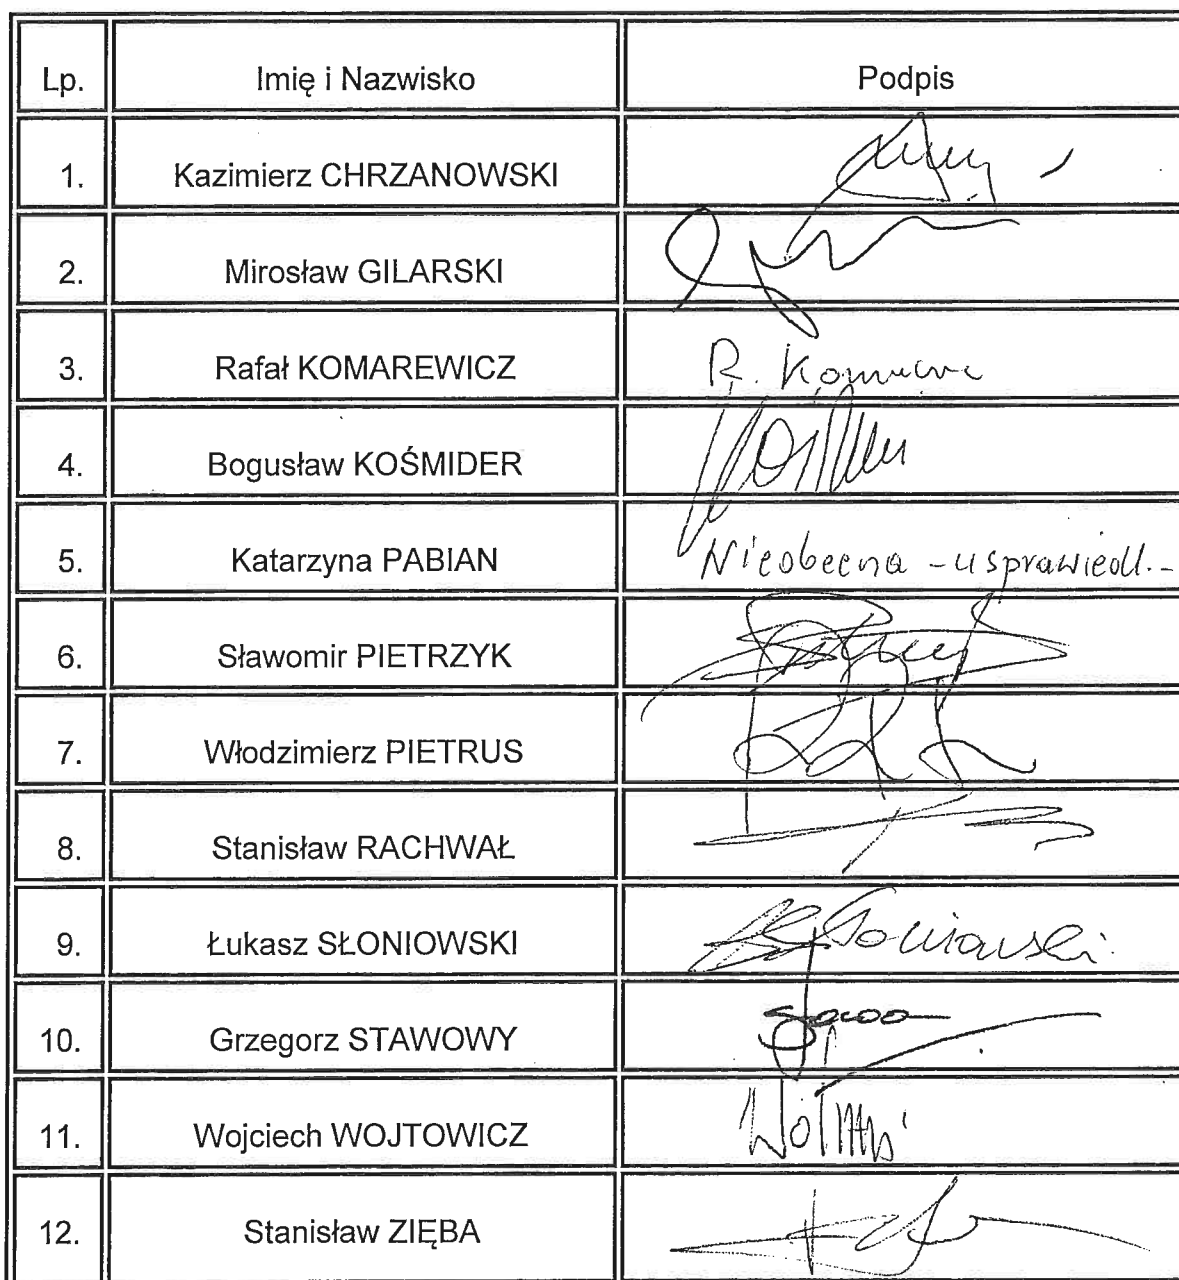 Lp. Imię i Nazwisko Podpis
1. Kazimierz CHRZANOWSKI
2. Mirosław GILARSKI
3. Rafał KOMAREWICZ R.
4. Bogusław KOŚMIDER
5. Katarzyna PABIAN Nieobecna - usprawiedl. -
6. Sławomir PIETRZYK
7. Włodzimierz PIETRUS
8. Stanisław RACHWAŁ
9. Łukasz SŁONIOWSKI
10. Grzegorz STAWOWY
11. Wojciech WOJTOWICZ
12. Stanisław ZIĘBA